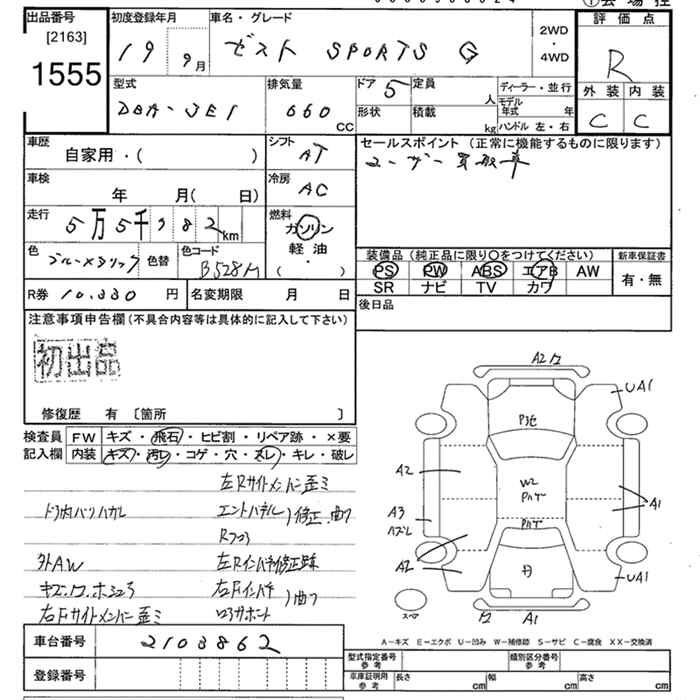 出品番号
[2163]
1555
初度登録年月
19 9月
車名・グレード
ゼスト SPORTS G
2WD
・
4WD
評価点
R
外装 内装
C C
型式
DBA-JE1
排気量
660 CC
ドア 5
定員 人
形状
積載 kg
ディーラー・並行
モデル年式 年
ハンドル 左・右
車歴
自家用・( )
シフト
AT
セールスポイント (正常に機能するものに限ります)
ユーザー買取車
車検
年 月( 日)
冷房
AC
走行
5万5千982km
燃料
ガソリン
軽油
( ・ )
色
ブルーメタリック
色替
色コード
B528M
装備品 (純正品に限り○をつけてください)
新車保証書
PS PW ABS エアB AW
有・無
SR ナビ TV カワ
R券 10,330 円
名変期限 月 日
後日品
注意事項申告欄(不具合内容等は具体的に記入して下さい)
初出品
修復歴 有 〔箇所 〕
検査員 記入欄
FW キズ・飛石・ヒビ割・リペア跡・×要
内装 キズ・汚レ・コゲ・穴・ヌレ・キレ・破レ
左Rサイドメンバー歪ミ
ドア内バリハガレ
エンドパネル)修正、曲り
Rフロア
外AW
左Rインパネ修正跡
キズ・ワレ・ホショウ
右Fインパネ)曲り
右Fサイドメンバー歪ミ
コアサポート
A2 ワ
UA1
P3セ
A2
W2
Pハゲ
A3
ハズレ
A1
Pハゲ
A2
UA1
スペア
ワ A1
A-キズ E-エクボ U-凹み W-補修跡 S-サビ C-腐食 XX-交換済
車台番号 2103862
登録番号
型式指定番号 参考
類別区分番号 参考
車庫証明用 参考
長さ cm
幅 cm
高さ cm